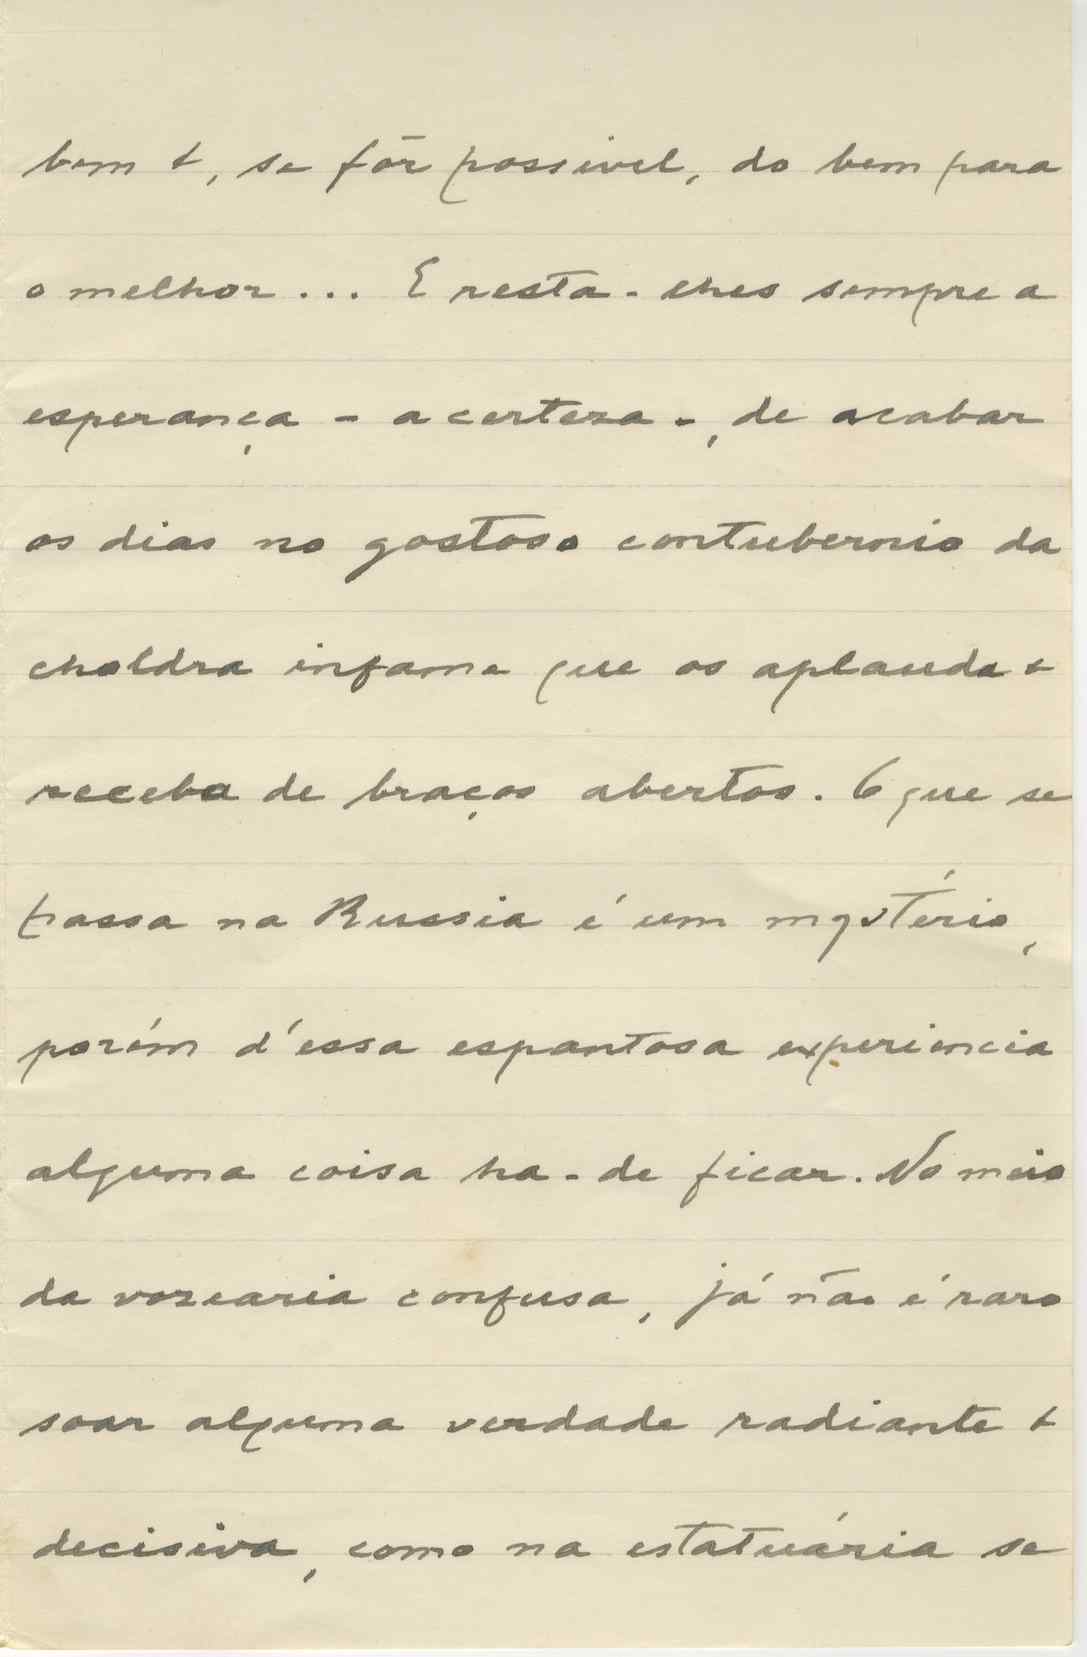 bem e, se fôr possivel, do bem para
o melhor... E resta-lhes sempre a
esperança - a certeza -, de acabar
os dias no gostoso contubernio da
choldra infame que os aplauda e
receba de braços abertos. O que se
passa na Russia é um mystério,
porém d'essa espantosa experiencia
alguma coisa ha-de ficar. No meio
da vozearia confusa, já não é raro
soar alguma verdade radiante e
decisiva, como na estatuária se